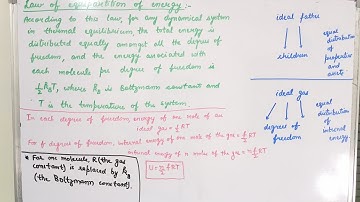 Law of equipartition of energy:-
According to this law, for any dynamical system
in thermal equilibrium, the total energy is
distributed equally amongst all the degree of
freedom, and the energy associated with
each molecule per degree of freedom is
½ k_B T, where k_B is Boltzmann constant and
T is the temperature of the system.
In each degree of freedom, energy of one mole of an
ideal gas = ½ RT
For f degree of freedom, internal energy of one mole of the gas = f/2 RT
internal energy of n moles of the gas = n f/2 RT
* For one molecule, R (the gas
constant) is replaced by k_B
(the Boltzmann constant).
ideal father
children
equal
distribution
of
properties
and
assets
ideal gas
degree of
freedom
equal
distribution
of
internal
energy